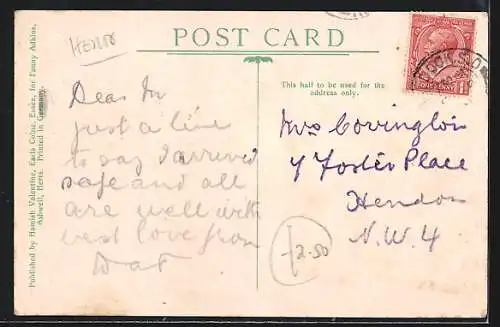 HERTS
POST CARD
This half to be used for the
address only.
Dear
just a line
to say I arrived
safe and all
are well with
best love from
Mrs Covington
Foster Place
Hendon
N.W.4
12.50
Published by Hamish Valentine, Earls Colne, Essex, for Fanny Adkins,
Ashwell, Herts. Printed in Germany.